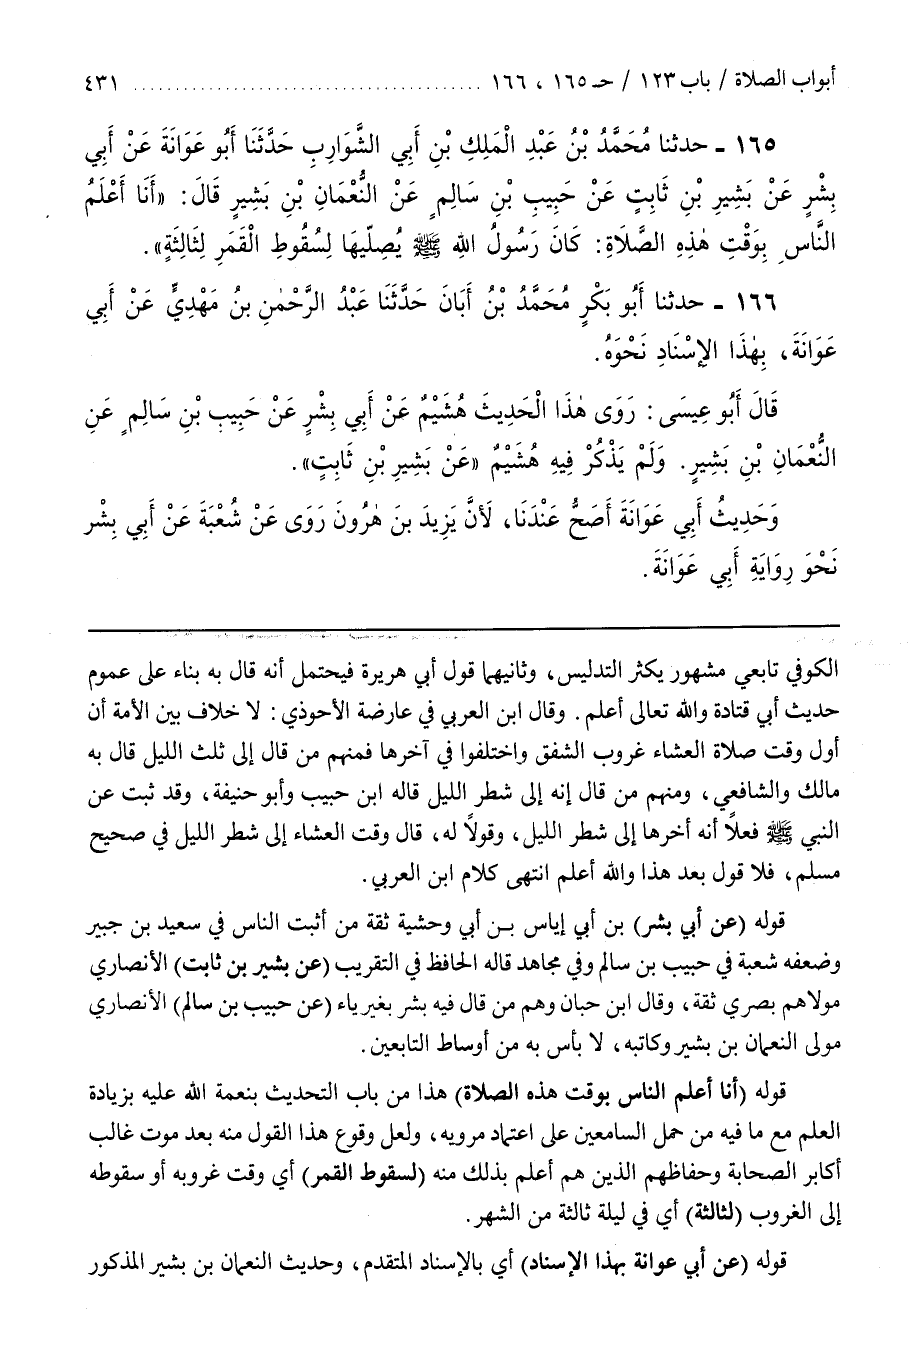 أبواب الصلاة / باب ١٢٣ / حـ ١٦٥ ، ١٦٦ .......................................... ٤٣١
١٦٥ ـ حدثنا مُحَمَّدُ بْنُ عَبْدِ الْمَلِكِ بْنِ أَبِي الشَّوَارِبِ حَدَّثَنَا أَبُو عَوَانَةَ عَنْ أَبِي
بِشْرٍ عَنْ بَشِيرِ بْنِ ثَابِتٍ عَنْ حَبِيبِ بْنِ سَالِمٍ عَنْ النُّعْمَانِ بْنِ بَشِيرٍ قَالَ: «أَنَا أَعْلَمُ
النَّاسِ بِوَقْتِ هٰذِهِ الصَّلَاةِ: كَانَ رَسُولُ اللهِ ﷺ يُصلِّيهَا لِسُقُوطِ الْقَمَرِ لِثَالِثَةٍ».
١٦٦ ـ حدثنا أَبُو بَكْرٍ مُحَمَّدُ بْنُ أَبَانَ حَدَّثَنَا عَبْدُ الرَّحْمٰنِ بنُ مَهْدِيٍّ عَنْ أَبِي
عَوَانَةَ، بِهٰذَا الإسْنَادِ نَحْوَهُ.
قَالَ أَبُو عِيسَى: رَوَى هٰذَا الْحَدِيثَ هُشَيْمٌ عَنْ أَبِي بِشْرٍ عَنْ حَبِيبِ بْنِ سَالِمٍ عَنِ
النُّعْمَانِ بْنِ بَشِيرٍ. وَلَمْ يَذْكُرْ فِيهِ هُشَيْمٌ «عَنْ بَشِيرِ بْنِ ثَابِتٍ».
وَحَدِيثُ أَبِي عَوَانَةَ أَصَحُّ عَنْدَنَا، لَأنَّ يَزِيدَ بنَ هٰرُونَ رَوَى عَنْ شُعْبَةَ عَنْ أَبِي بِشْر
نَحْوَ رِوَايَةِ أَبِي عَوَانَةَ.
الكوفي تابعي مشهور يكثر التدليس، وثانيهما قول أبي هريرة فيحتمل أنه قال به بناء على عموم
حديث أبي قتادة والله تعالى أعلم. وقال ابن العربي في عارضة الأحوذي: لا خلاف بين الأمة أن
أول وقت صلاة العشاء غروب الشفق واختلفوا في آخرها فمنهم من قال إلى ثلث الليل قال به
مالك والشافعي، ومنهم من قال إنه إلى شطر الليل قاله ابن حبيب وأبو حنيفة، وقد ثبت عن
النبي ﷺ فعلاً أنه أخرها إلى شطر الليل، وقولاً له، قال وقت العشاء إلى شطر الليل في صحيح
مسلم، فلا قول بعد هذا والله أعلم انتهى كلام ابن العربي.
قوله (عن أبي بشر) بن أبي إياس بـن أبي وحشية ثقة من أثبت الناس في سعيد بن جبير
وضعفه شعبة في حبيب بن سالم وفي مجاهد قاله الحافظ في التقريب (عن بشير بن ثابت) الأنصاري
مولاهم بصري ثقة، وقال ابن حبان وهم من قال فيه بشر بغير ياء (عن حبيب بن سالم) الأنصاري
مولى النعمان بن بشير وكاتبه، لا بأس به من أوساط التابعين.
قوله (أنا أعلم الناس بوقت هذه الصلاة) هذا من باب التحديث بنعمة الله عليه بزيادة
العلم مع ما فيه من حمل السامعين على اعتماد مرويه، ولعل وقوع هذا القول منه بعد موت غالب
أكابر الصحابة وحفاظهم الذين هم أعلم بذلك منه (لسقوط القمر) أي وقت غروبه أو سقوطه
إلى الغروب (لثالثة) أي في ليلة ثالثة من الشهر.
قوله (عن أبي عوانة بهذا الإسناد) أي بالإسناد المتقدم، وحديث النعمان بن بشير المذكور